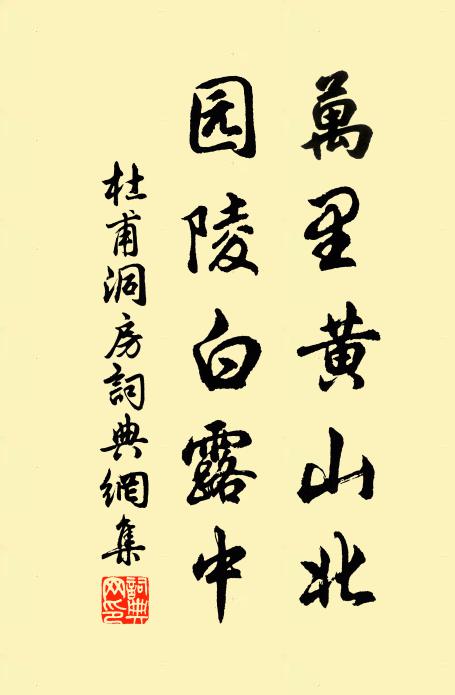 萬里黄山北
园陵白露中
杜甫洞房詞典網集
詞典网印